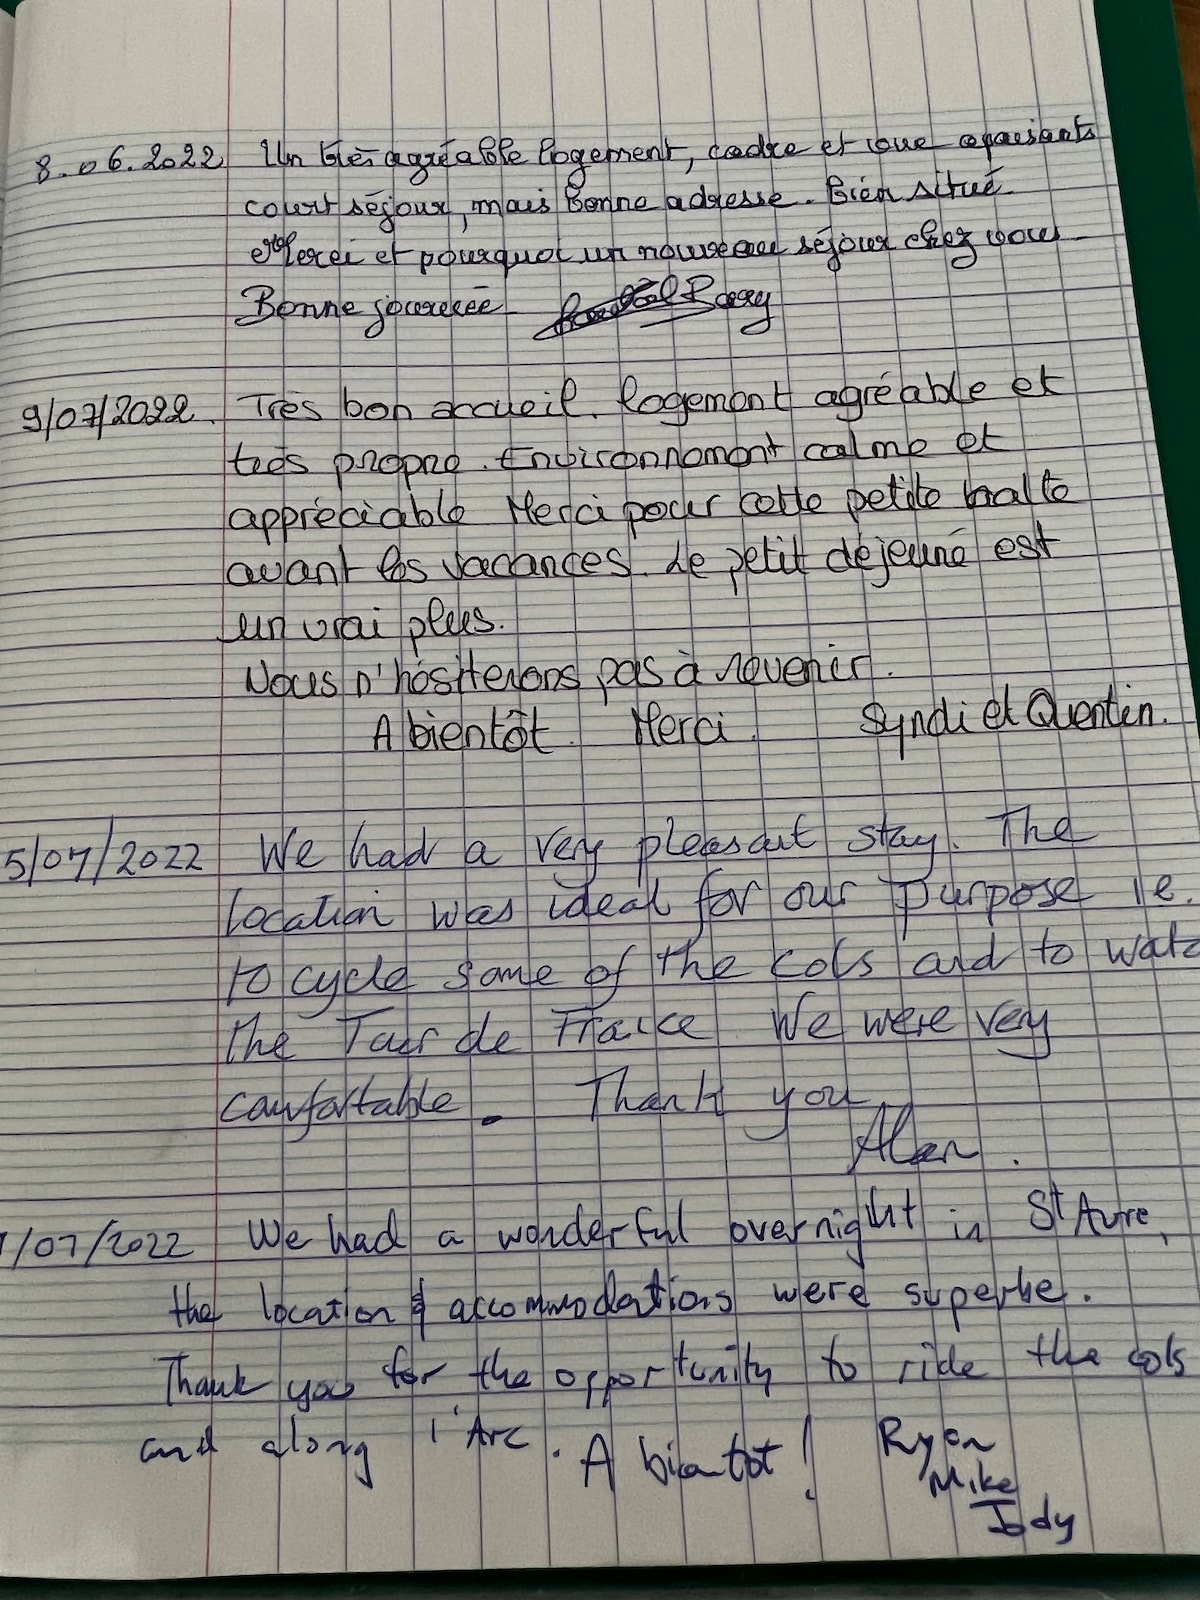 8.06.2022 Un très agréable logement, cadre et vue apaisants
court séjour, mais bonne adresse. Bien situé
Merci et pourquoi un nouveau séjour chez vous
Bonne journée Barry
9/07/2022. Très bon accueil. Logement agréable et
très propre. Environnement calme et
appréciable Merci pour cette petite halte
avant les vacances. Le petit déjeuné est
un vrai plus.
Nous n'hésiterons pas à revenir.
A bientôt. Merci. Syndi et Quentin.
5/07/2022 We had a very pleasant stay. The
location was ideal for our purpose ie.
to cycle some of the cols and to watc
the Tour de France We were very
comfortable. Thank you
Alan.
1/07/2022 We had a wonderful overnight in St Avre,
the location & accommodations were superbe.
Thank you for the opportunity to ride the cols
and along l'Arc. A biantot! Ryan
Mike
Jody